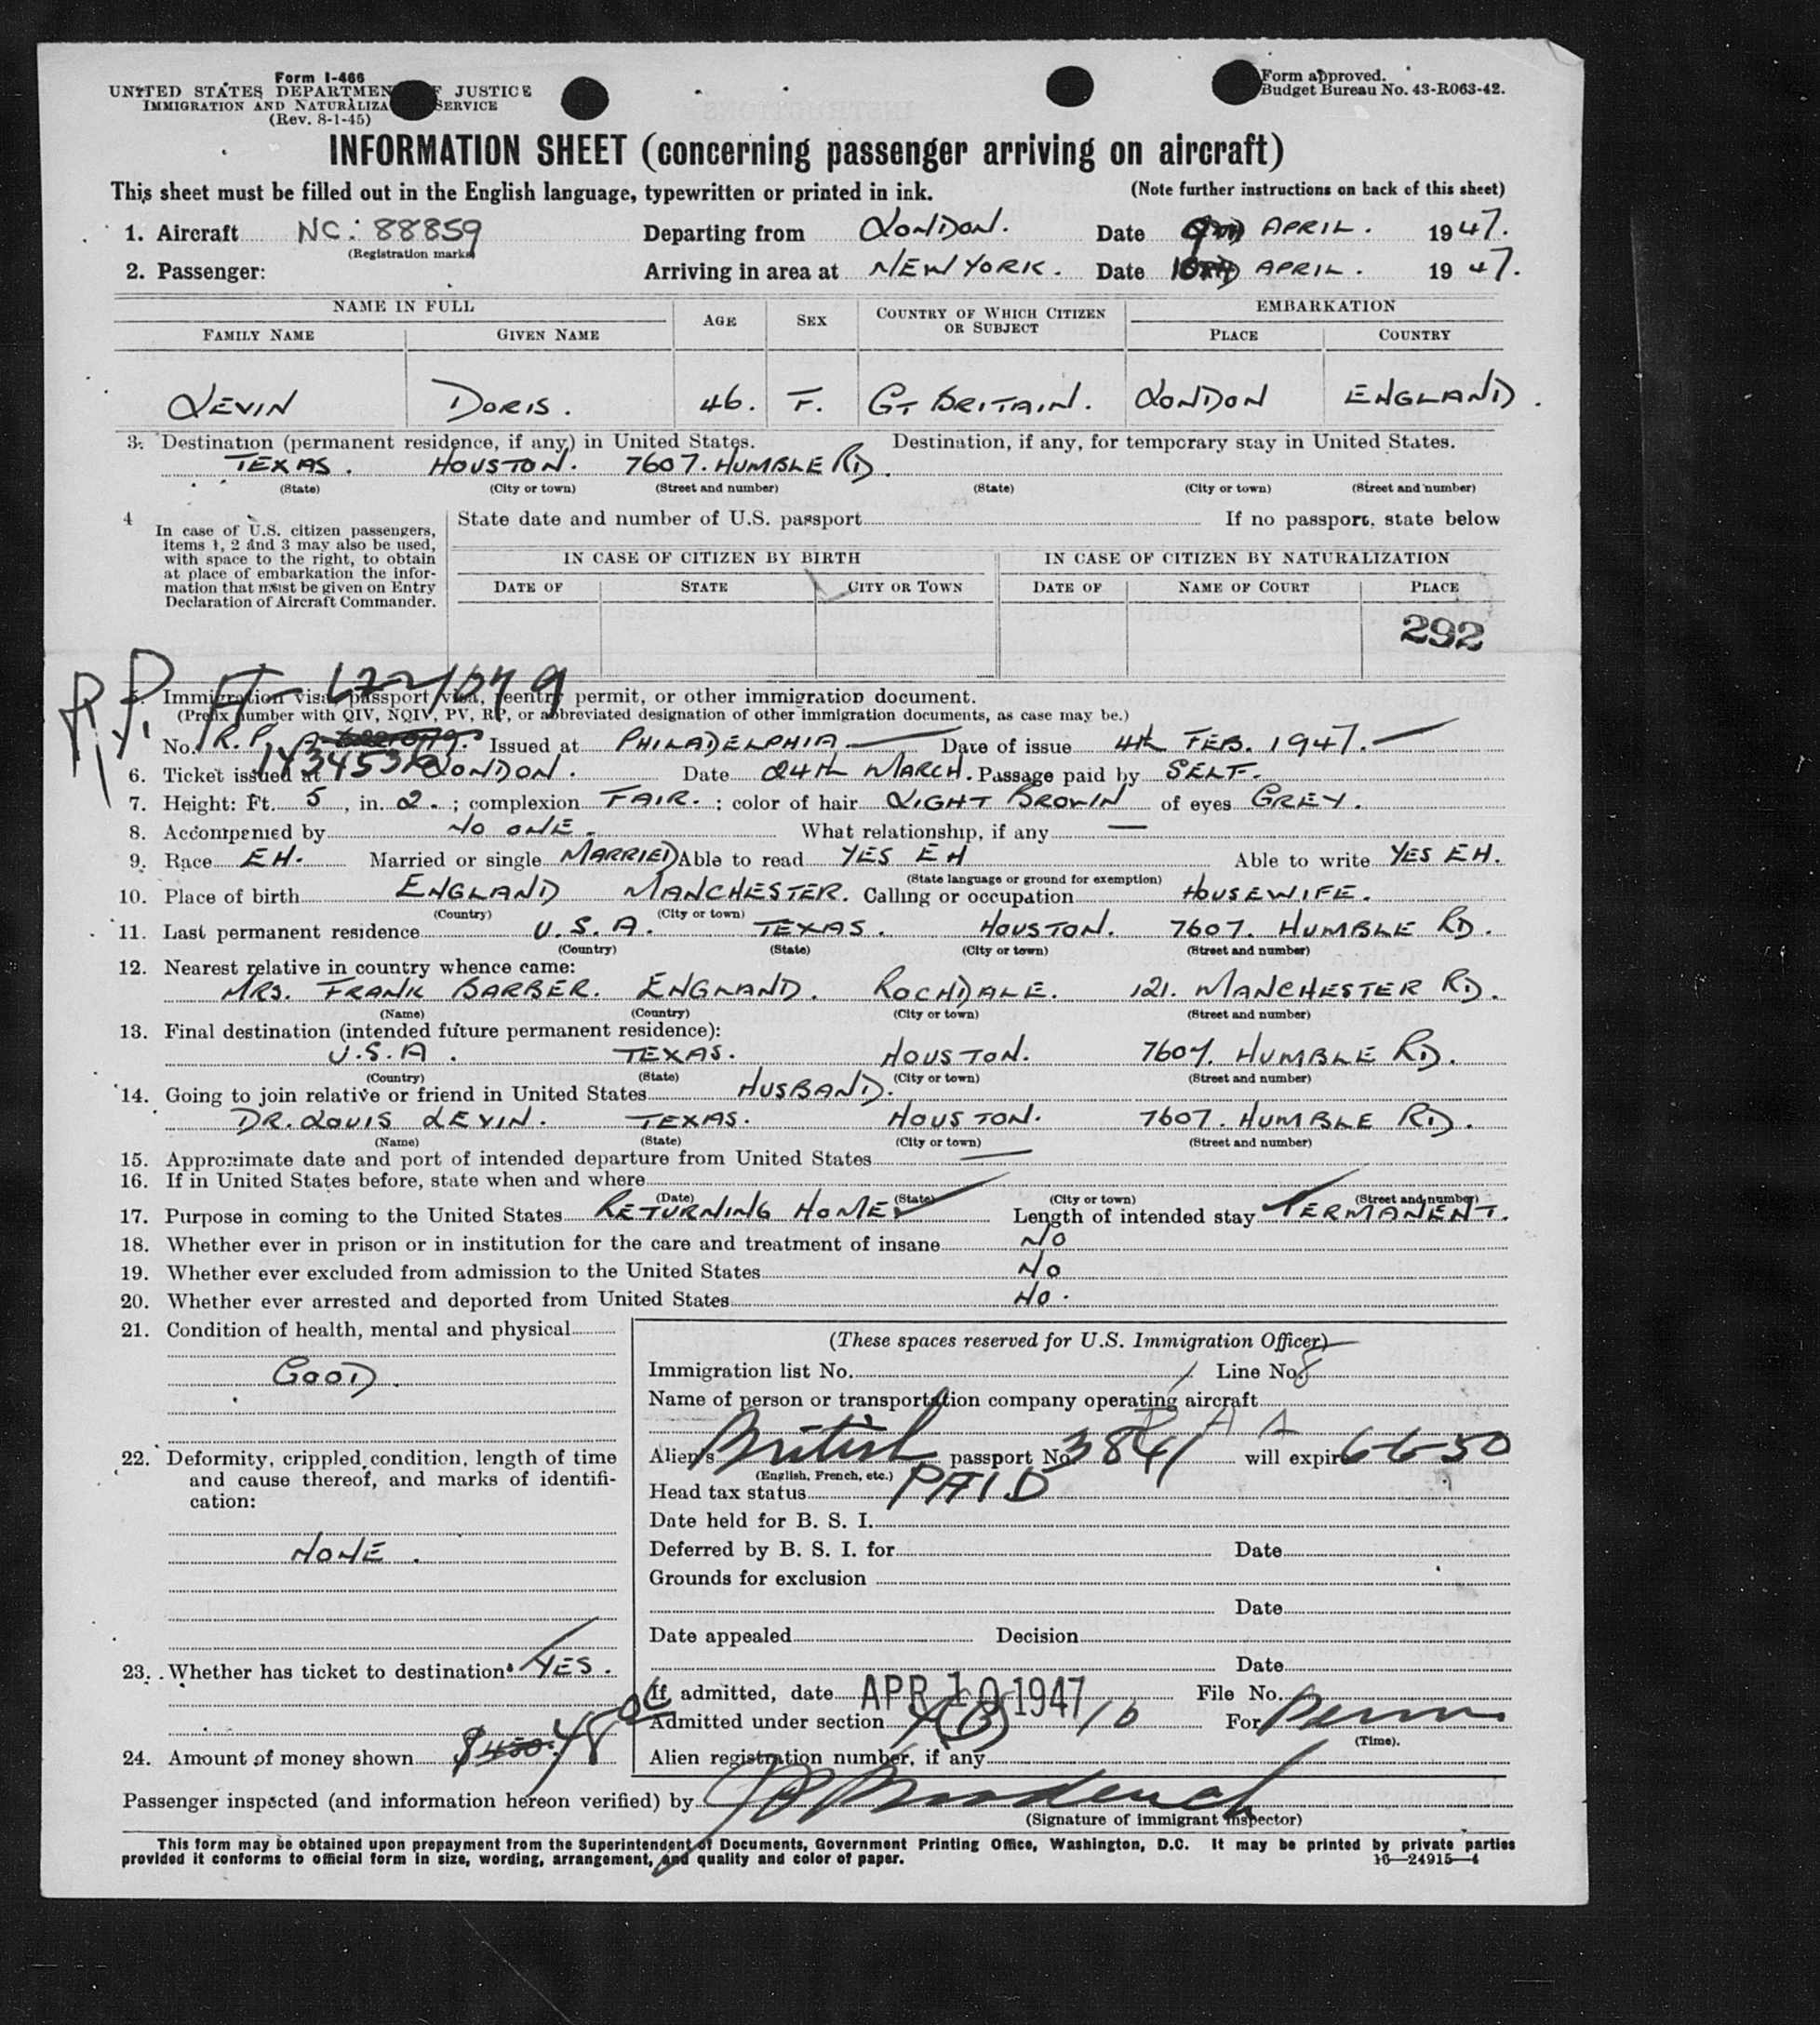 Form I-466
UNITED STATES DEPARTMEN F JUSTICE
IMMIGRATION AND NATURALIZA SERVICE
(Rev. 8-1-45)
Form approved.
Budget Bureau No. 43-R063-42.
INFORMATION SHEET (concerning passenger arriving on aircraft)
This sheet must be filled out in the English language, typewritten or printed in ink. (Note further instructions on back of this sheet)
1. Aircraft NC: 88859 Departing from LONDON. Date APRIL. 1947.
(Registration marks)
2. Passenger: Arriving in area at NEW YORK. Date APRIL. 1947.
NAME IN FULL AGE SEX COUNTRY OF WHICH CITIZEN OR SUBJECT EMBARKATION
FAMILY NAME GIVEN NAME PLACE COUNTRY
LEVIN DORIS. 46. F. GT BRITAIN. LONDON ENGLAND.
3. Destination (permanent residence, if any) in United States. Destination, if any, for temporary stay in United States.
TEXAS. HOUSTON. 7607. HUMBLE RD.
(State) (City or town) (Street and number) (State) (City or town) (Street and number)
4 In case of U.S. citizen passengers, items 1, 2 and 3 may also be used, with space to the right, to obtain at place of embarkation the information that must be given on Entry Declaration of Aircraft Commander.
State date and number of U.S. passport If no passport, state below
IN CASE OF CITIZEN BY BIRTH IN CASE OF CITIZEN BY NATURALIZATION
DATE OF STATE CITY OR TOWN DATE OF NAME OF COURT PLACE
292
R.P.
Immigration visa, passport visa, reentry permit, or other immigration document.
(Prefix number with QIV, NQIV, PV, RP, or abbreviated designation of other immigration documents, as case may be.)
No. R.P. Issued at PHILADELPHIA Date of issue 4th FEB. 1947.
6. Ticket issued at LONDON. Date 24th MARCH. Passage paid by SELF.
7. Height: Ft. 5, in. 2.; complexion FAIR.; color of hair LIGHT BROWN of eyes GREY.
8. Accompanied by NO ONE. What relationship, if any —
9. Race EH. Married or single MARRIED Able to read YES EH Able to write YES EH.
(State language or ground for exemption)
10. Place of birth ENGLAND MANCHESTER. Calling or occupation HOUSEWIFE.
(Country) (City or town)
11. Last permanent residence U.S.A. TEXAS. HOUSTON. 7607. HUMBLE RD.
(Country) (State) (City or town) (Street and number)
12. Nearest relative in country whence came:
MRS. FRANK BARBER. ENGLAND. ROCHDALE. 121. MANCHESTER RD.
(Name) (Country) (City or town) (Street and number)
13. Final destination (intended future permanent residence):
U.S.A. TEXAS. HOUSTON. 7607. HUMBLE RD.
(Country) (State) (City or town) (Street and number)
14. Going to join relative or friend in United States HUSBAND.
DR. LOUIS LEVIN. TEXAS. HOUSTON. 7607. HUMBLE RD.
(Name) (State) (City or town) (Street and number)
15. Approximate date and port of intended departure from United States —
16. If in United States before, state when and where
(Date) (State) (City or town) (Street and number)
17. Purpose in coming to the United States RETURNING HOME Length of intended stay PERMANENT.
18. Whether ever in prison or in institution for the care and treatment of insane NO
19. Whether ever excluded from admission to the United States NO
20. Whether ever arrested and deported from United States NO.
21. Condition of health, mental and physical
GOOD.
22. Deformity, crippled condition, length of time
and cause thereof, and marks of identifi-
cation:
NONE.
23. Whether has ticket to destination YES.
24. Amount of money shown
(These spaces reserved for U.S. Immigration Officer)
Immigration list No. Line No. 8
Name of person or transportation company operating aircraft
P A A
Alien's British passport No. 3841 will expire 6-6-50
(English, French, etc.)
Head tax status PAID
Date held for B. S. I.
Deferred by B. S. I. for Date
Grounds for exclusion
Date
Date appealed Decision
Date
If admitted, date APR 10 1947 File No.
Admitted under section 4(B) For Perm
(Time).
Alien registration number, if any
Passenger inspected (and information hereon verified) by
(Signature of immigrant inspector)
This form may be obtained upon prepayment from the Superintendent of Documents, Government Printing Office, Washington, D.C. It may be printed by private parties
provided it conforms to official form in size, wording, arrangement, and quality and color of paper. 16—24915-4